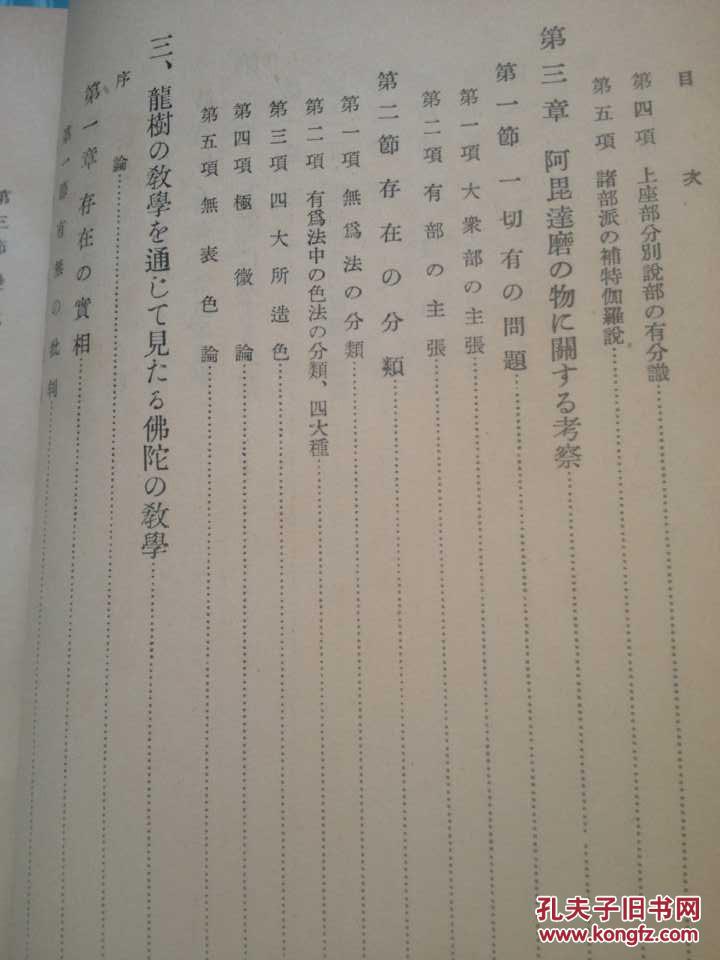 目次
第四項 上座部分別說部の有分識
第五項 諸部派の補特伽羅說
第三章 阿毘達磨の物に關する考察
第一節 一切有の問題
第一項 大衆部の主張
第二項 有部の主張
第二節 存在の分類
第一項 無爲法の分類
第二項 有爲法中の色法の分類、四大種
第三項 四大所造色
第四項 極微論
第五項 無表色論
三、龍樹の敎學を通じて見たる佛陀の敎學
序論
第一章 存在の實相
第一節 有無の批判
第三節
孔夫子旧书网
kongfz.com